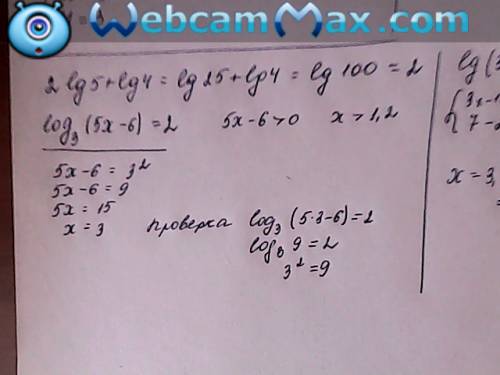 WebcamMax.com
2 lg5 + lg4 = lg 25 + lg4 = lg 100 = 2
log₃ (5x-6) = 2 5x-6 > 0 x > 1,2
5x-6 = 3²
5x-6 = 9
5x = 15
x = 3 проверка log₃ (5·3-6) = 2
log₃ 9 = 2
3² = 9
lg(3
{3x-1
7-2
x = 3,
=